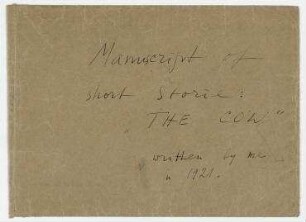 Manuscript of
short Storie:
"THE COW"
written by me
in 1921.